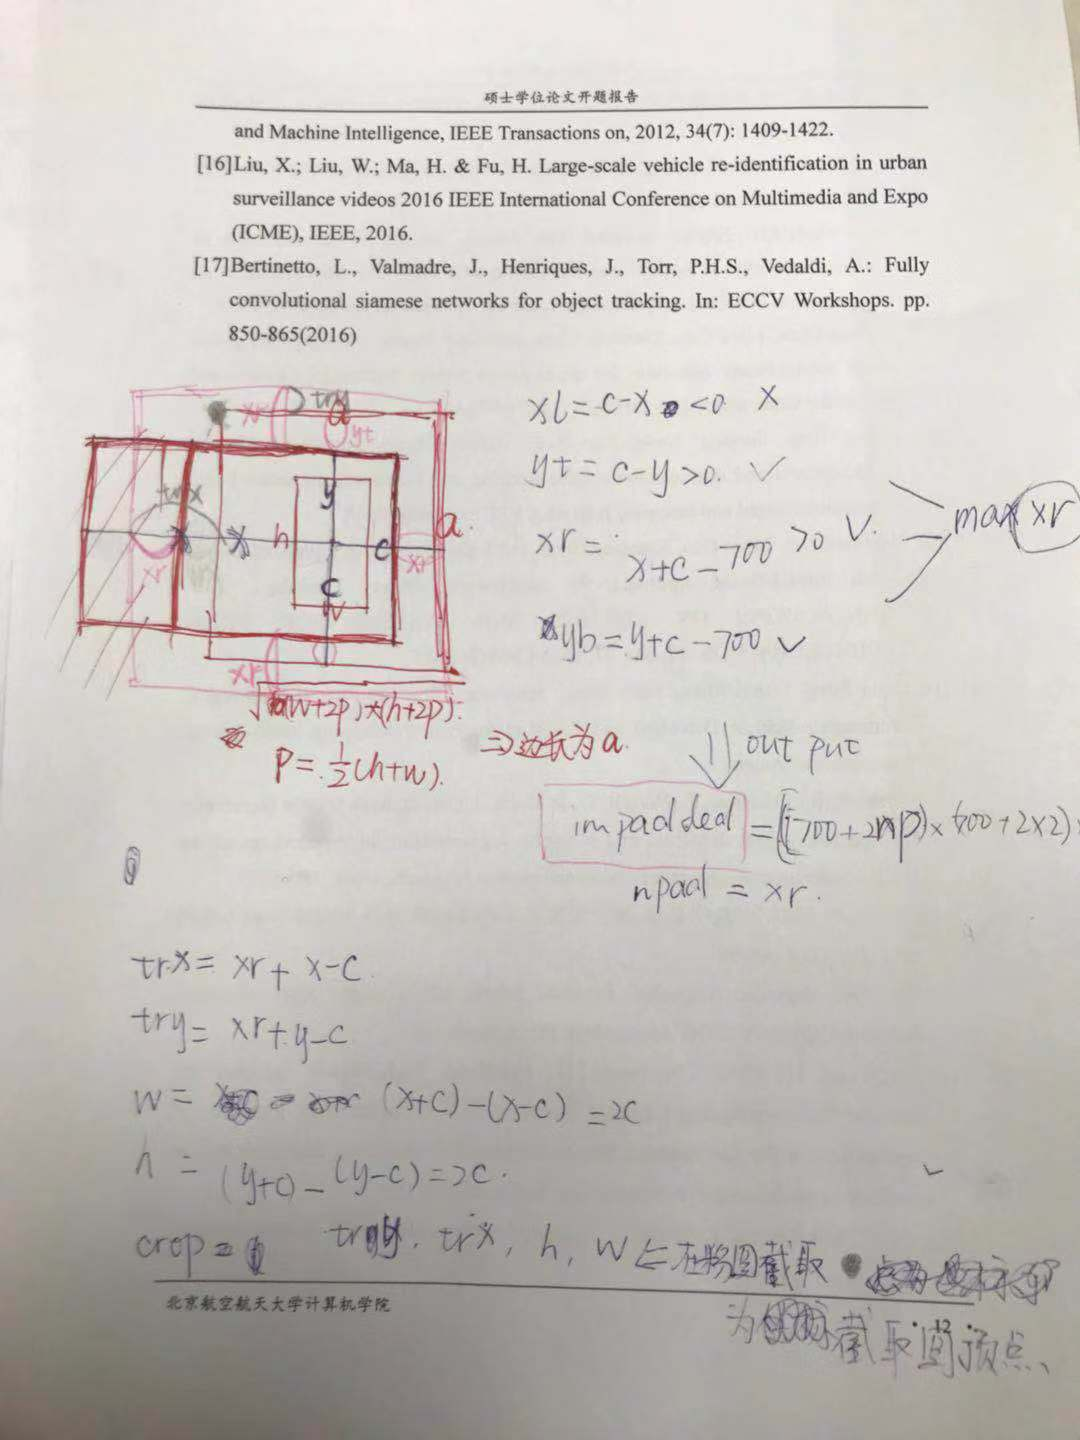 硕士学位论文开题报告
and Machine Intelligence, IEEE Transactions on, 2012, 34(7): 1409-1422.
[16]Liu, X.; Liu, W.; Ma, H. & Fu, H. Large-scale vehicle re-identification in urban
surveillance videos 2016 IEEE International Conference on Multimedia and Expo
(ICME), IEEE, 2016.
[17]Bertinetto, L., Valmadre, J., Henriques, J., Torr, P.H.S., Vedaldi, A.: Fully
convolutional siamese networks for object tracking. In: ECCV Workshops. pp.
850-865(2016)
xr try a
yt
trx
y
x h c a
xr xr
c
w
xr
xl = c-x <0 X
yt = c-y >0. ✓
xr = x+c-700 >0 ✓.
max xr
yb = y+c-700 ✓
√(w+2p)×(h+2p).
P = 1/2(h+w).
⇒边长为a.
⇓ out put
impadded = (700+2np)×
npad = xr.
trx = xr + x-c
try = xr + y-c
w = (x+c)-(x-c) = 2c
h = (y+c)-(y-c) = 2c.
crop = try. trx, h, w ⇐ 在将图截取
北京航空航天大学计算机学院
12
为 截取图顶点